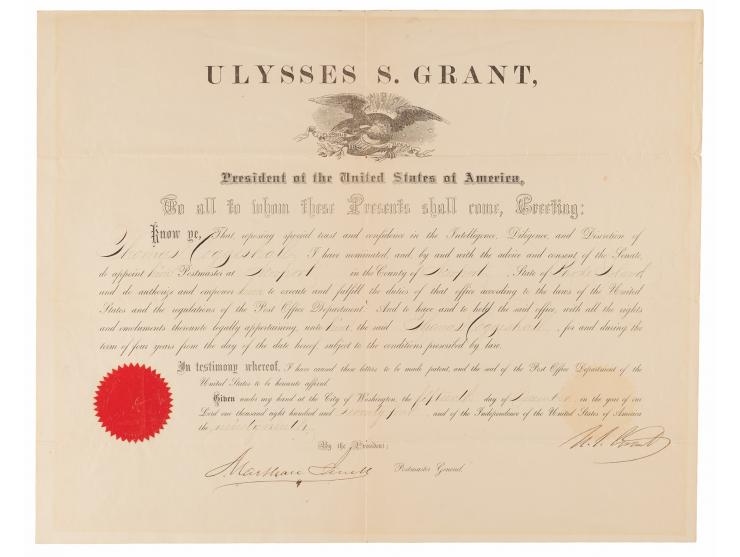 ULYSSES S. GRANT,
President of the United States of America,
To all to whom these Presents shall come, Greeting:
Know ye, That, reposing special trust and confidence in the Intelligence, Diligence, and Discretion of
Thomas Coggeshall, I have nominated, and, by and with the advice and consent of the Senate,
do appoint him Postmaster at Newport in the County of Newport, State of Rhode Island
and do authorize and empower him to execute and fulfill the duties of that office according to the laws of the United
States and the regulations of the Post Office Department: And to have and to hold the said office, with all the rights
and emoluments thereunto legally appertaining, unto him the said Thomas Coggeshall, for and during the
term of four years from the day of the date hereof, subject to the conditions prescribed by law.
In testimony whereof, I have caused these letters to be made patent, and the seal of the Post Office Department of the
United States to be hereunto affixed.
Given under my hand at the City of Washington, the fifteenth day of December, in the year of our
Lord one thousand eight hundred and seventy four, and of the Independence of the United States of America
the ninety ninth.
By the President:
U. S. Grant
Marshall Jewell Postmaster General.